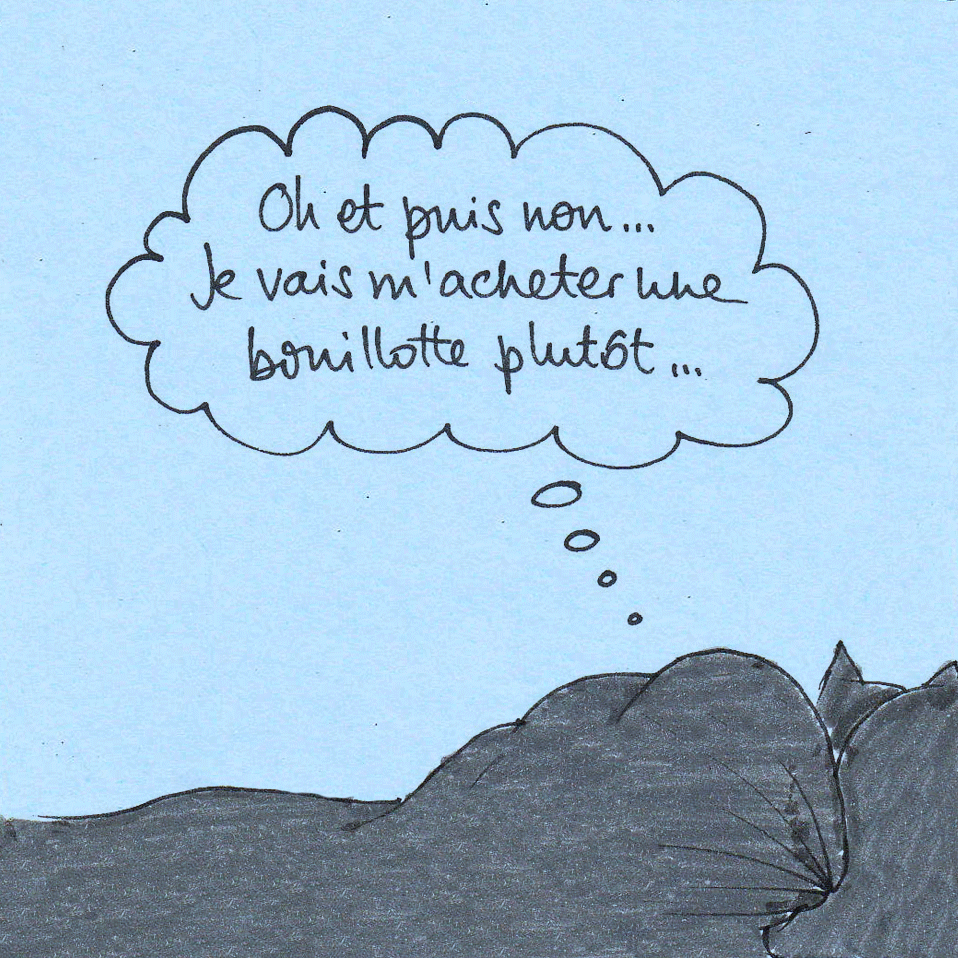 Oh et puis non...
Je vais m'acheter une
bouillotte plutôt...